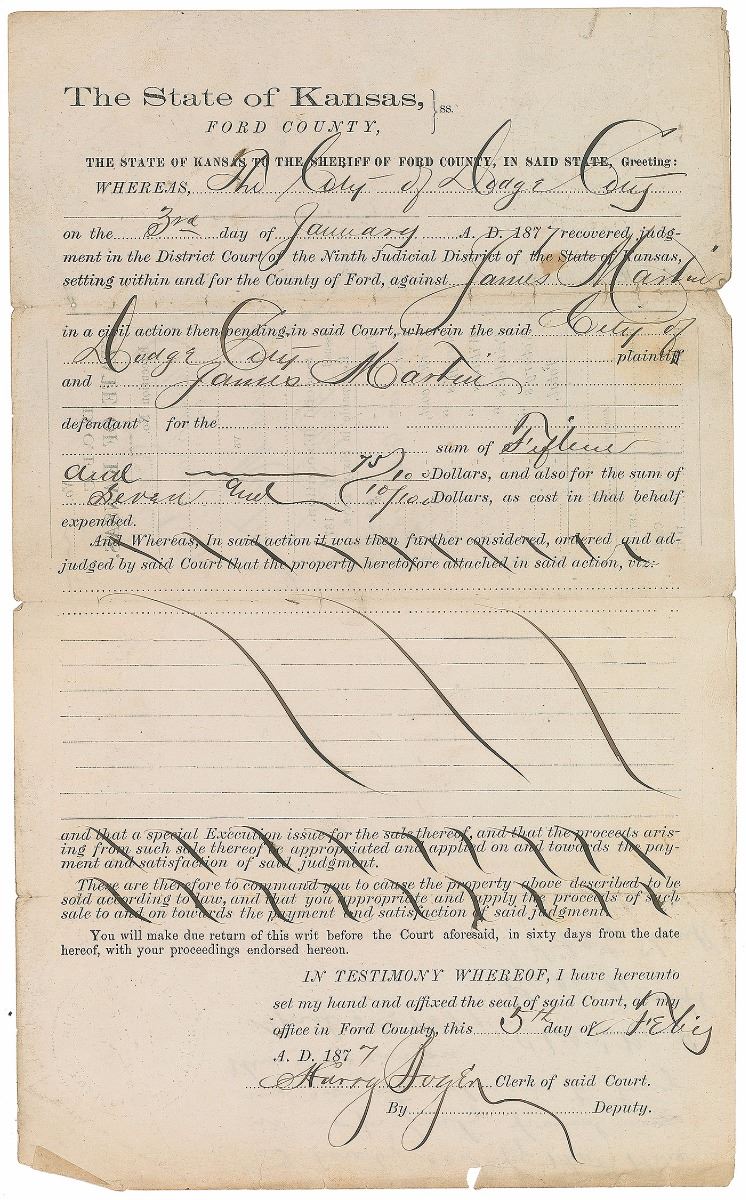 The State of Kansas, } ss.
FORD COUNTY,
THE STATE OF KANSAS TO THE SHERIFF OF FORD COUNTY, IN SAID STATE, Greeting:
WHEREAS, The City of Dodge City
on the 3rd day of January A. D. 1877 recovered judg-
ment in the District Court of the Ninth Judicial District of the State of Kansas,
setting within and for the County of Ford, against James Martin
in a civil action then pending in said Court, wherein the said City of
Dodge City plaintiff
and James Martin
defendant for the
sum of Fifteen
and 75/100 Dollars, and also for the sum of
Seven and 10/100 Dollars, as cost in that behalf
expended.
And Whereas, In said action it was then further considered, ordered and ad-
judged by said Court that the property heretofore attached in said action, viz:
and that a special Execution issue for the sale thereof, and that the proceeds aris-
ing from such sale thereof be appropriated and applied on and towards the pay-
ment and satisfaction of said judgment.
There are therefore to command you to cause the property above described to be
sold according to law, and that you appropriate and supply the proceeds of such
sale to and on towards the payment and satisfaction of said judgment
You will make due return of this writ before the Court aforesaid, in sixty days from the date
hereof, with your proceedings endorsed hereon.
IN TESTIMONY WHEREOF, I have hereunto
set my hand and affixed the seal of said Court, at my
office in Ford County, this 5th day of Feby
A. D. 1877
Harry Boyer Clerk of said Court.
By Deputy.